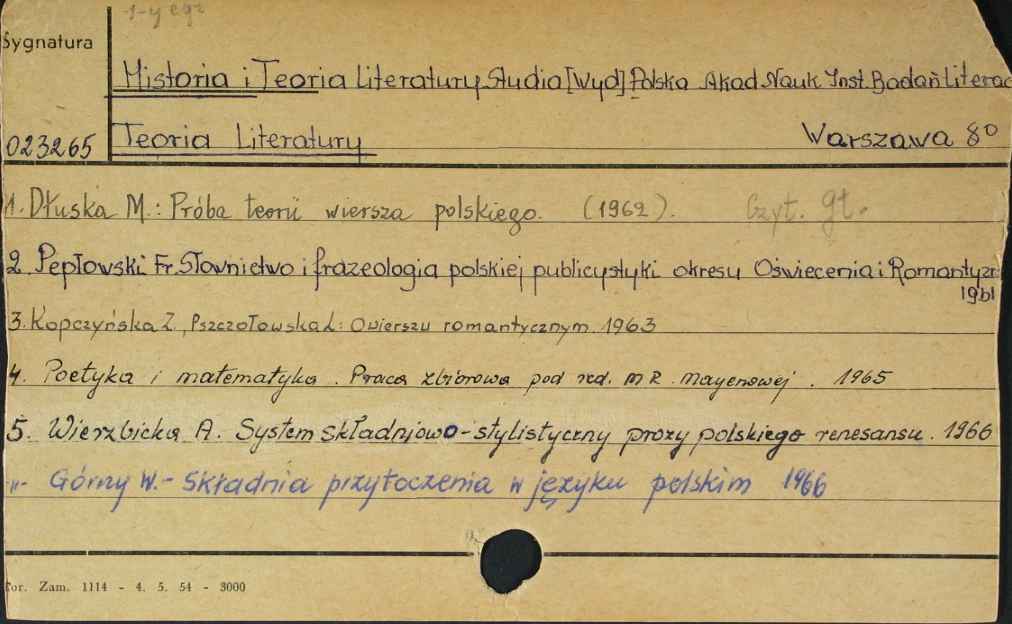 1-y egz
Sygnatura
Historia i Teoria Literatury Studia [Wyd] Polska Akad Nauk Inst. Badań Literac
023265 Teoria Literatury Warszawa 8º
1. Dłuska M.: Próba teorii wiersza polskiego. (1962). Czyt. gł.
2 Pepłowski Fr. Słownictwo i frazeologia polskiej publicystyki okresu Oświecenia i Romantyzm
1961
3. Kopczyńska Z., Pszczołowska L: O wierszu romantycznym. 1963
4. Poetyka i matematyka. Praca zbiorowa pod red. M R. Mayenowej. 1965
5. Wierzbicka A. System składniowo-stylistyczny prozy polskiego renesansu. 1966
"- Górny W. - Składnia przytoczenia w języku polskim 1966
Zam. 1114 - 4. 5. 54 - 3000